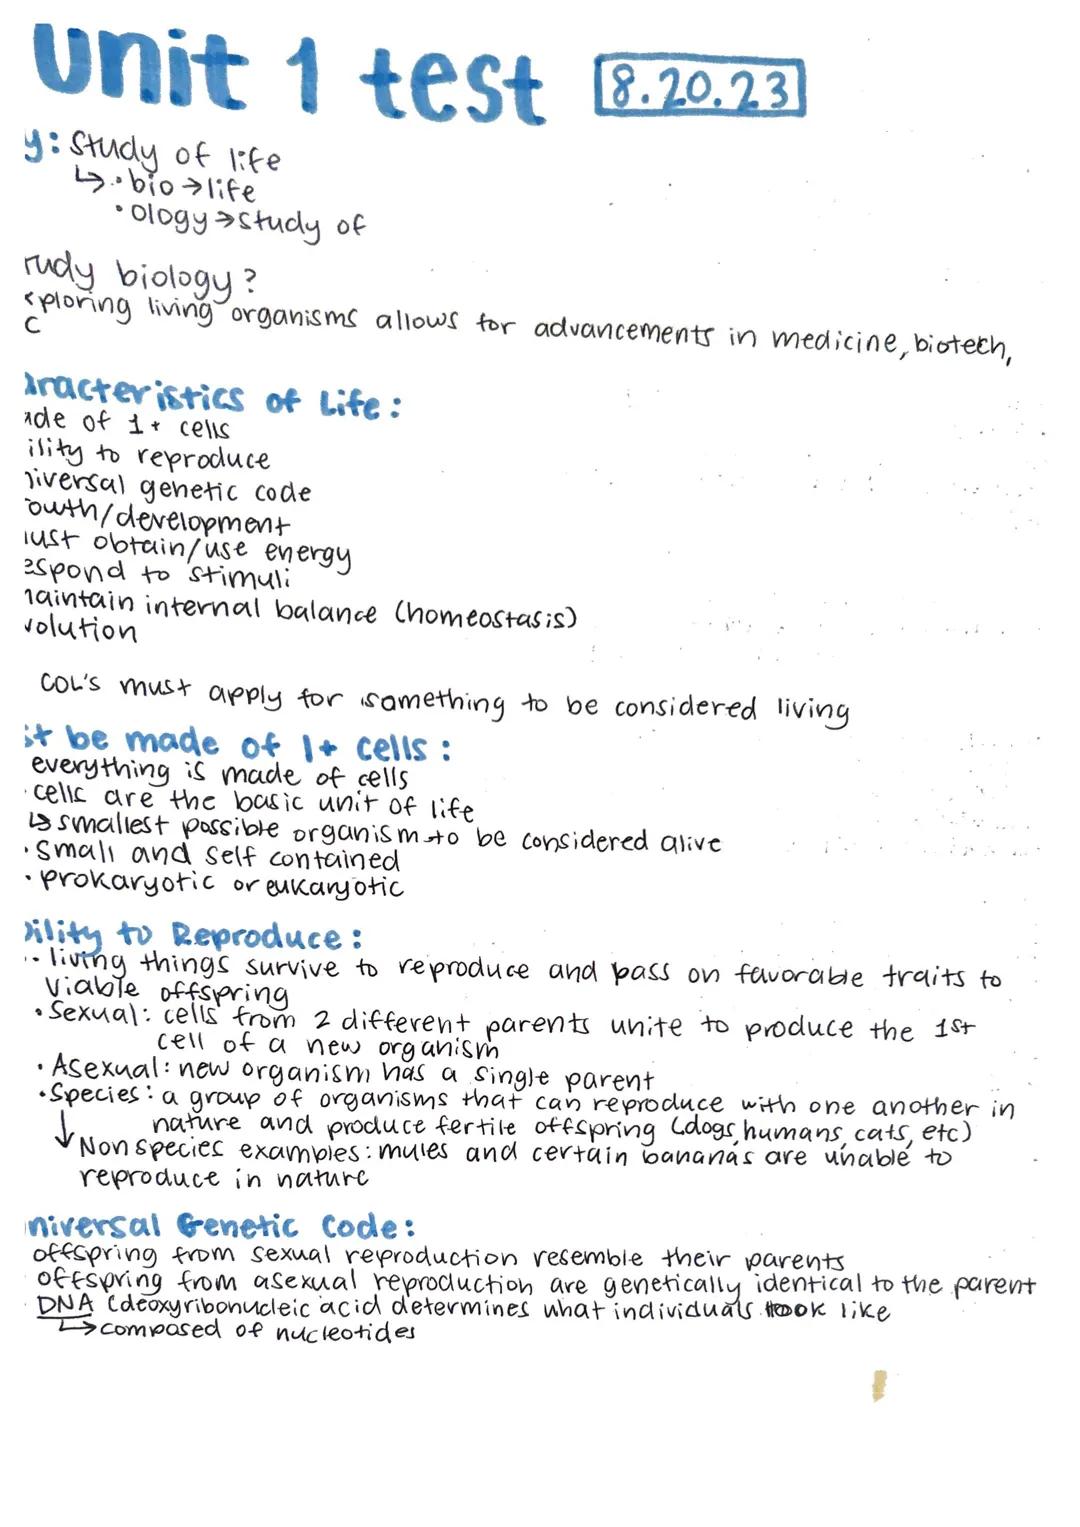 Unit 1 test 8.20.23
y: Study of life
↳ • bio → life
• ology → study of
rudy biology?
xploring living organisms allows for advancements in medicine, biotech,
c
aracteristics of Life:
ade of 1+ cells
ility to reproduce
niversal genetic code
owth/development
ust obtain/use energy
espond to stimuli
naintain internal balance (homeostasis)
volution
COL's must apply for something to be considered living
st be made of 1+ cells:
everything is made of cells
• cells are the basic unit of life
↳ smallest possible organism to be considered alive
• Small and self contained
• prokaryotic or eukaryotic
bility to Reproduce:
• living things survive to reproduce and pass on favorable traits to
viable offspring
• Sexual: cells from 2 different parents unite to produce the 1st
cell of a new organism
• Asexual: new organism has a single parent
• Species: a group of organisms that can reproduce with one another in
nature and produce fertile offspring (dogs, humans, cats, etc)
↓ Non species examples: mules and certain bananas are unable to
reproduce in nature
niversal Genetic Code:
offspring from sexual reproduction resemble their parents
offspring from asexual reproduction are genetically identical to the parent
DNA (deoxyribonucleic acid determines what individuals look like
↳ composed of nucleotides